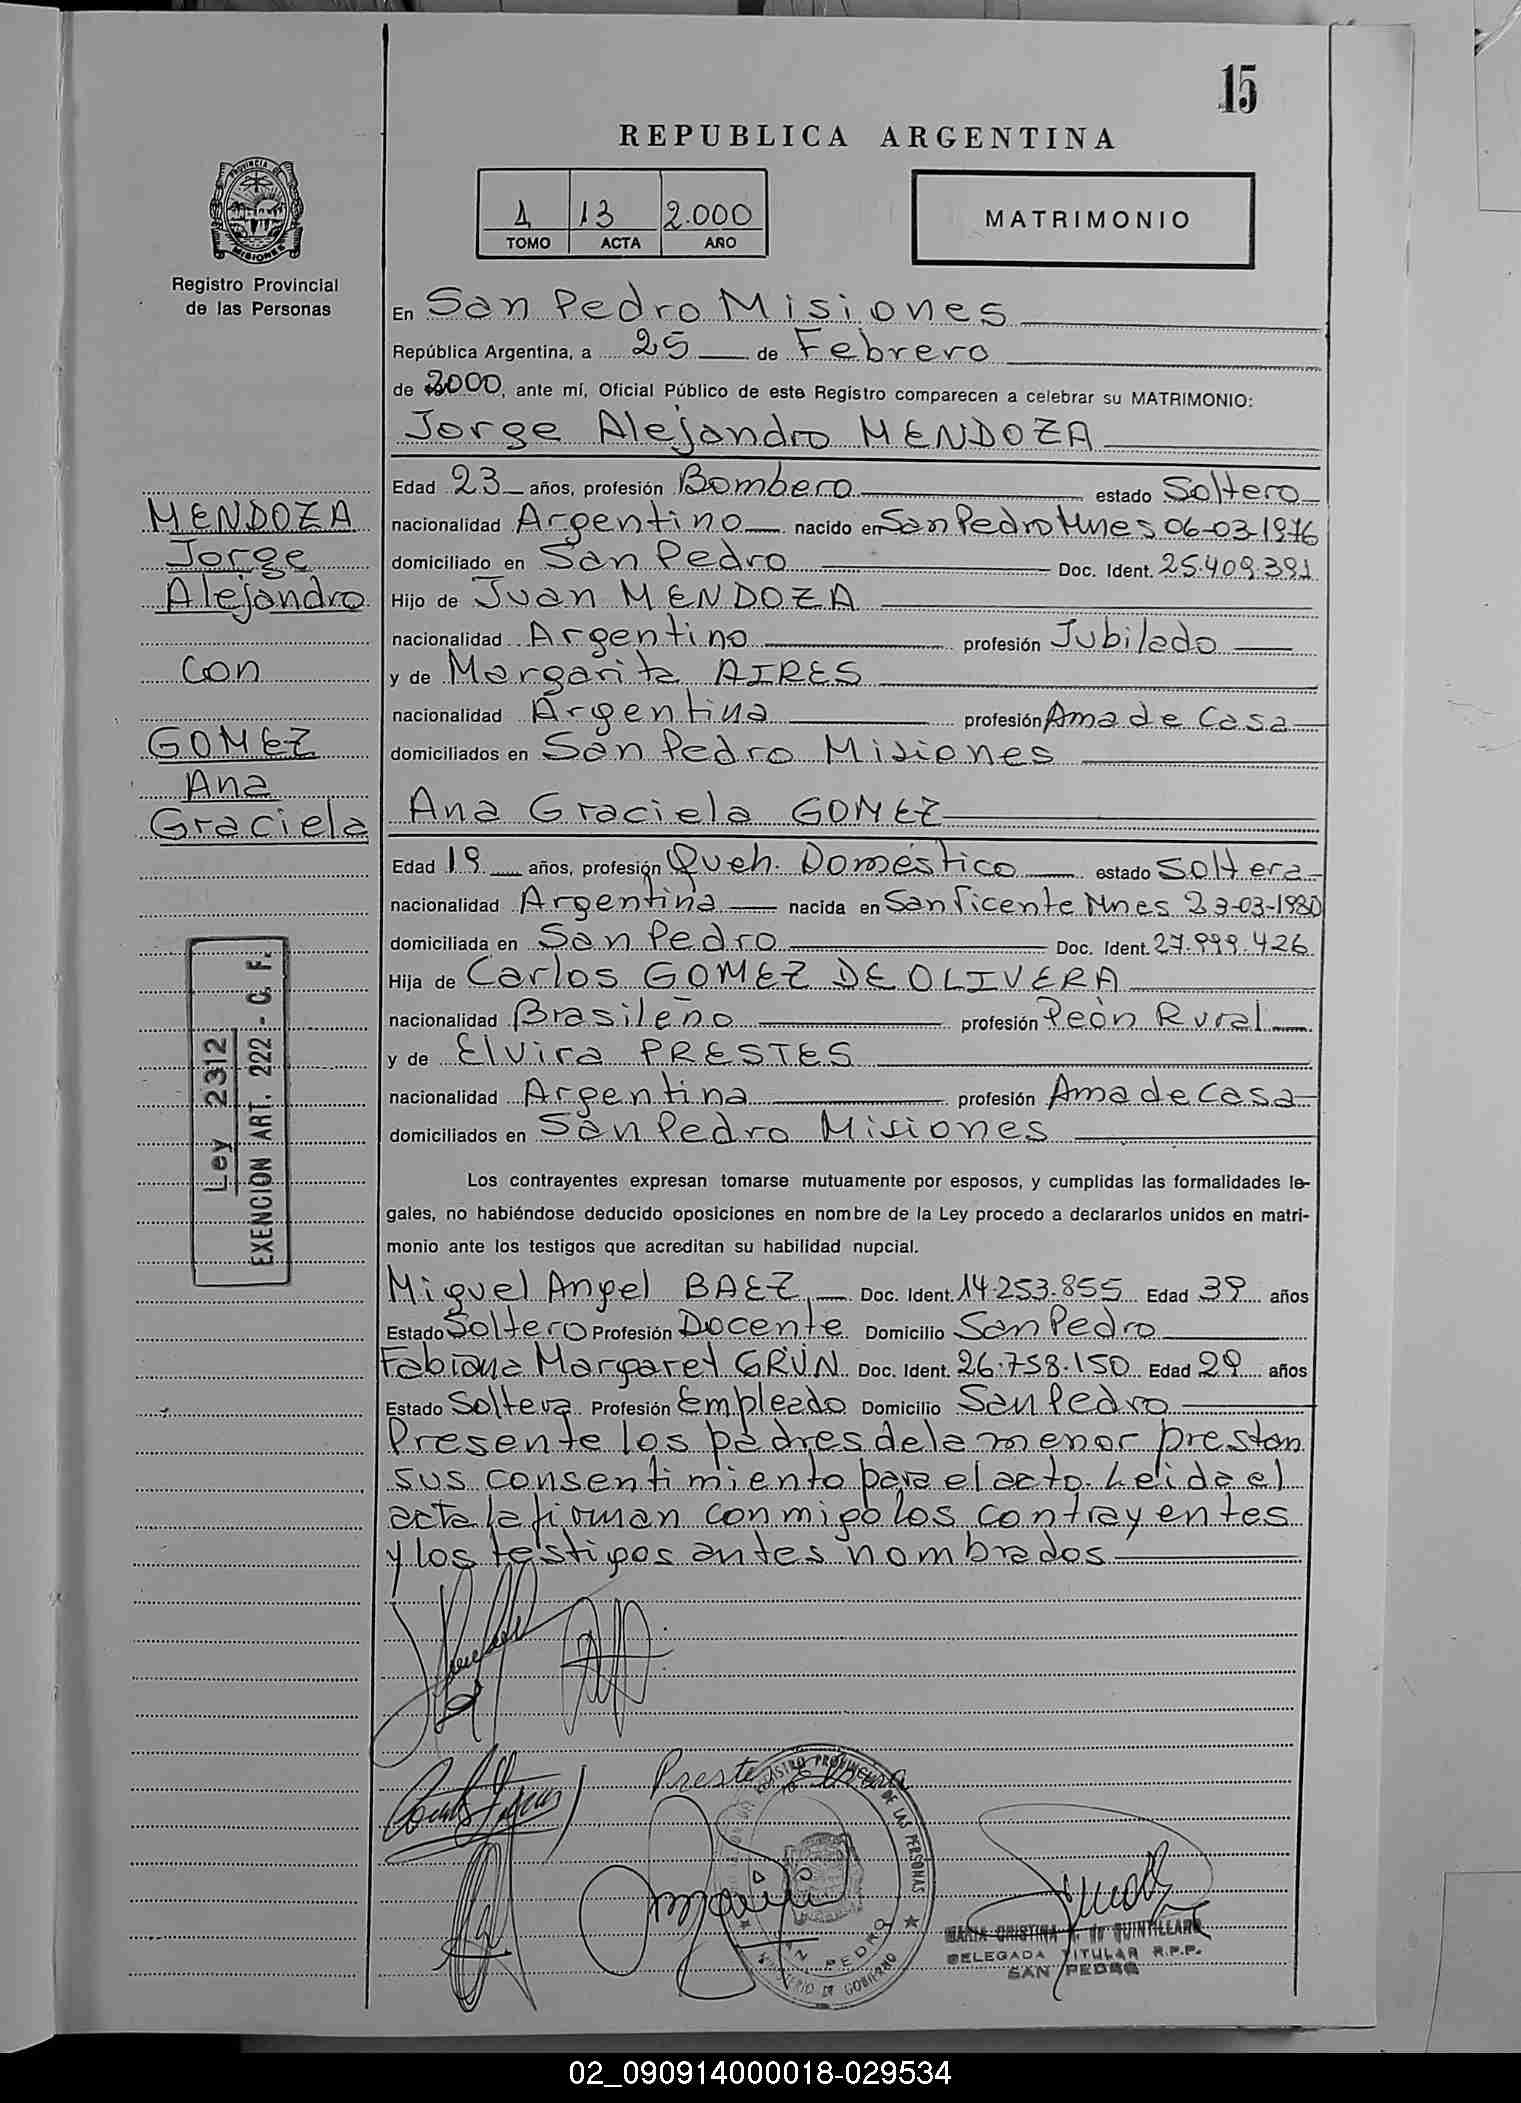 15
REPUBLICA ARGENTINA
PROVINCIA DE
MISIONES
Registro Provincial
de las Personas
1 13 2.000
TOMO ACTA AÑO
MATRIMONIO
En San Pedro Misiones
República Argentina, a 25 de Febrero
de 2000, ante mí, Oficial Público de este Registro comparecen a celebrar su MATRIMONIO:
Jorge Alejandro MENDOZA
Edad 23 años, profesión Bombero estado Soltero
nacionalidad Argentino nacido en San Pedro Mnes 06-03-1976
domiciliado en San Pedro Doc. Ident. 25.409.391
Hijo de Juan MENDOZA
nacionalidad Argentino profesión Jubilado
y de Margarita AIRES
nacionalidad Argentina profesión Ama de Casa
domiciliados en San Pedro Misiones
MENDOZA
Jorge
Alejandro
con
GOMEZ
Ana
Graciela
Ana Graciela GOMEZ
Edad 19 años, profesión Queh. Doméstico estado Soltera
nacionalidad Argentina nacida en San Vicente Mnes 23-03-1980
domiciliada en San Pedro Doc. Ident. 27.999.426
Hija de Carlos GOMEZ DE OLIVERA
nacionalidad Brasileño profesión Peòn Rural
y de Elvira PRESTES
nacionalidad Argentina profesión Ama de Casa
domiciliados en San Pedro Misiones
Ley 2312
EXENCION ART. 222 - C. F.
Los contrayentes expresan tomarse mutuamente por esposos, y cumplidas las formalidades le-
gales, no habiéndose deducido oposiciones en nombre de la Ley procedo a declararlos unidos en matri-
monio ante los testigos que acreditan su habilidad nupcial.
Miguel Angel BAEZ Doc. Ident. 14.253.855 Edad 39 años
Estado Soltero Profesión Docente Domicilio San Pedro
Fabiana Margaret GRÜN Doc. Ident. 26.758.150 Edad 29 años
Estado Soltera Profesión Empleado Domicilio San Pedro
Presente los padres de la menor prestan
sus consentimiento para el acto. Leida el
acta la firman conmigo los contrayentes
y los testigos antes nombrados
REGISTRO PROVINCIAL DE LAS PERSONAS
SAN PEDRO
MINISTERIO DE GOBIERNO
MARIA CRISTINA de QUINTILLAN
DELEGADA TITULAR R.P.P.
SAN PEDRO
02_090914000018-029534